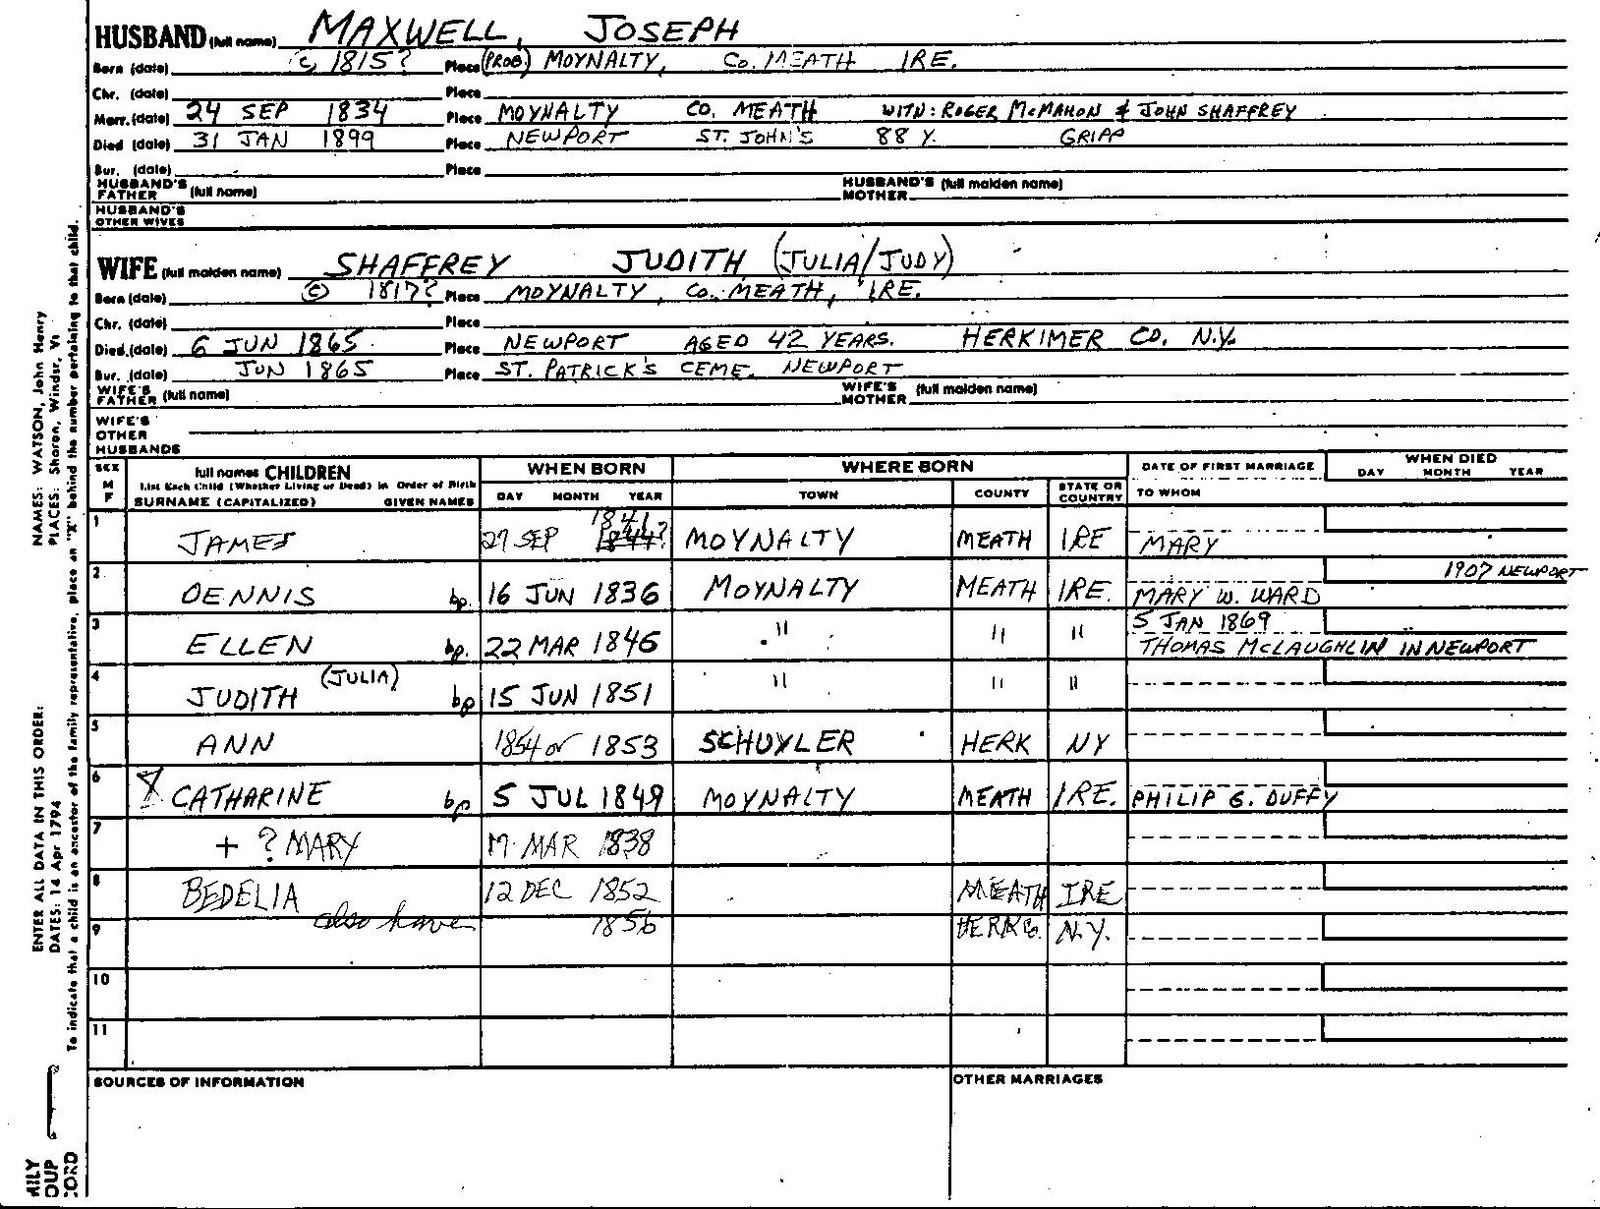 HUSBAND (full name) MAXWELL, JOSEPH
Born (date) © 1815? Place (PROB) MOYNALTY, Co. MEATH IRE.
Chr. (date) Place
Marr. (date) 24 SEP 1834 Place MOYNALTY CO. MEATH WITN: ROGER McMAHON & JOHN SHAFFREY
Died (date) 31 JAN 1899 Place NEWPORT ST. JOHN'S 88 Y. GRIPP
Bur. (date) Place
HUSBAND'S FATHER (full name) HUSBAND'S MOTHER (full maiden name)
HUSBAND'S OTHER WIVES
WIFE (full maiden name) SHAFFREY JUDITH (JULIA/JUDY)
Born (date) © 1817? Place MOYNALTY, Co. MEATH, IRE.
Chr. (date) Place
Died (date) 6 JUN 1865 Place NEWPORT AGED 42 YEARS. HERKIMER CO. N.Y.
Bur. (date) JUN 1865 Place ST. PATRICK'S CEME. NEWPORT
WIFE'S FATHER (full name) WIFE'S MOTHER (full maiden name)
WIFE'S OTHER HUSBANDS
SEX M F full names CHILDREN WHEN BORN WHERE BORN DATE OF FIRST MARRIAGE WHEN DIED
List Each Child (Whether Living or Dead) in Order of Birth DAY MONTH YEAR
SURNAME (CAPITALIZED) GIVEN NAMES DAY MONTH YEAR TOWN COUNTY STATE OR COUNTRY TO WHOM
1 JAMES 27 SEP 1841 1844? MOYNALTY MEATH IRE MARY
2 DENNIS bp. 16 JUN 1836 MOYNALTY MEATH IRE. MARY W. WARD 1907 NEWPORT
3 ELLEN bp. 22 MAR 1846 " " " 5 JAN 1869
THOMAS McLAUGHLIN IN NEWPORT
4 JUDITH (JULIA) bp 15 JUN 1851 " " "
5 ANN 1854 or 1853 SCHUYLER HERK NY
6 X CATHARINE bp 5 JUL 1849 MOYNALTY MEATH IRE. PHILIP G. DUFFY
7 + ? MARY MAR 1838
8 BEDELIA 12 DEC 1852 MEATH IRE
9 also have 1856 HERK Co. N.Y.
10
11
SOURCES OF INFORMATION OTHER MARRIAGES
ENTER ALL DATA IN THIS ORDER:
NAMES: WATSON, John Henry
DATES: 14 Apr 1794
PLACES: Sharon, Windsr, Vt
To indicate that a child is an ancestor of the family representative, place an "X" behind the number pertaining to that child.
MILY
OUP
CORD